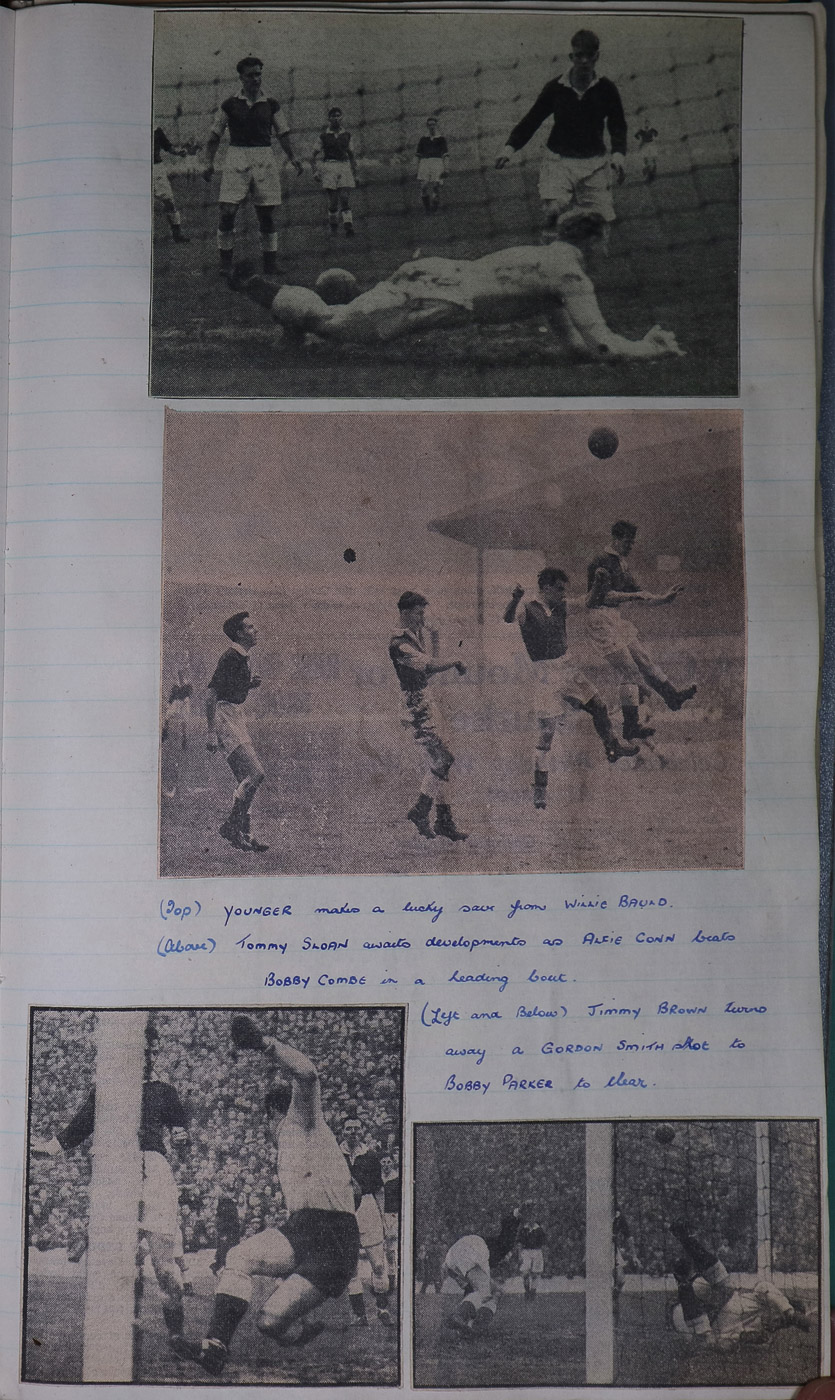 (Top) YOUNGER makes a lucky save from WILLIE BAULD.
(Above) Tommy SLOAN awaits developments as ALFIE CONN beats
BOBBY COMBE in a heading bout.
(Left and Below) JIMMY BROWN turns
away a GORDON SMITH shot to
BOBBY PARKER to clear.